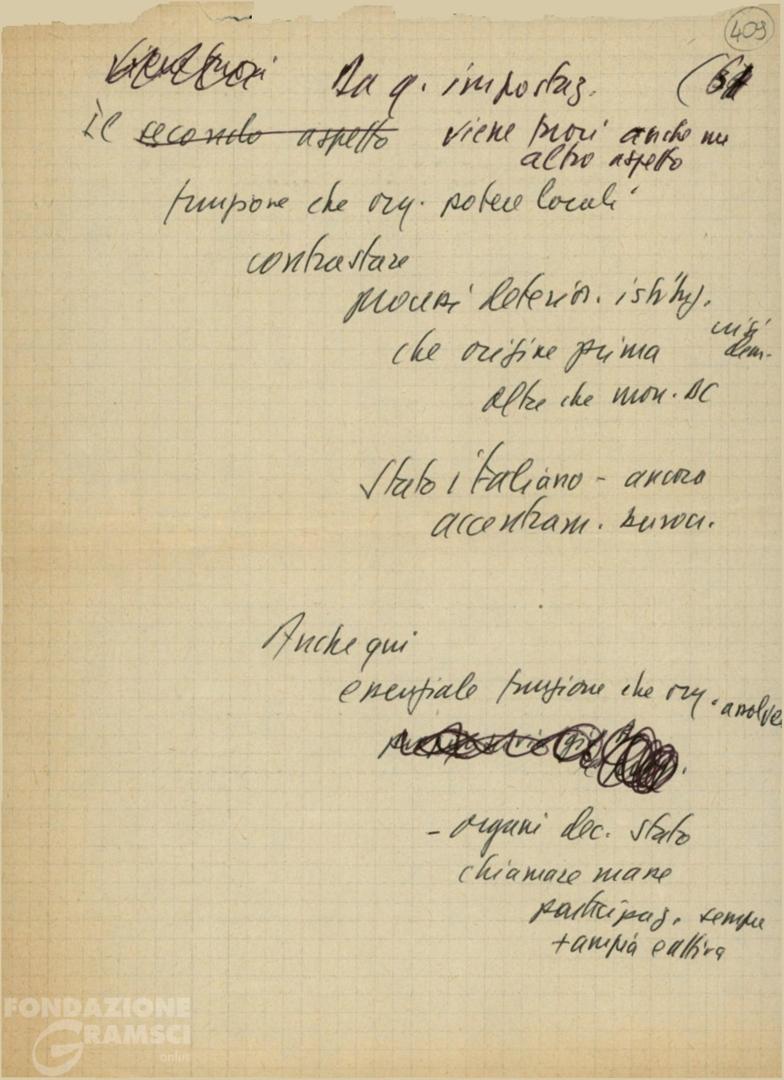 409
Da q. impostaz. (6
Il secondo aspetto viene fuori anche un
altro aspetto
funzione che org. potere locali
contrastare
processi deterior. istituz.
che origine prima crisi
dem.
oltre che mon. DC
Stato italiano - ancora
accentram. buroc.
Anche qui
essenziale funzione che org. assolve
- organi dec. stato
chiamare masse
partecipaz. sempre
+ ampia e attiva
FONDAZIONE
GRAMSCI
onlus